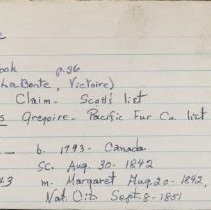 ook p.36
LaBonte, Victoire)
Claim - Scott's list
s Gregoire - Pacific Fur Co. list
b. 1793 - Canada
Sc. Aug. 30 - 1842
43 m. Margaret Aug. 20 - 1842,
Nat. Cit. Sept. 8 - 1851